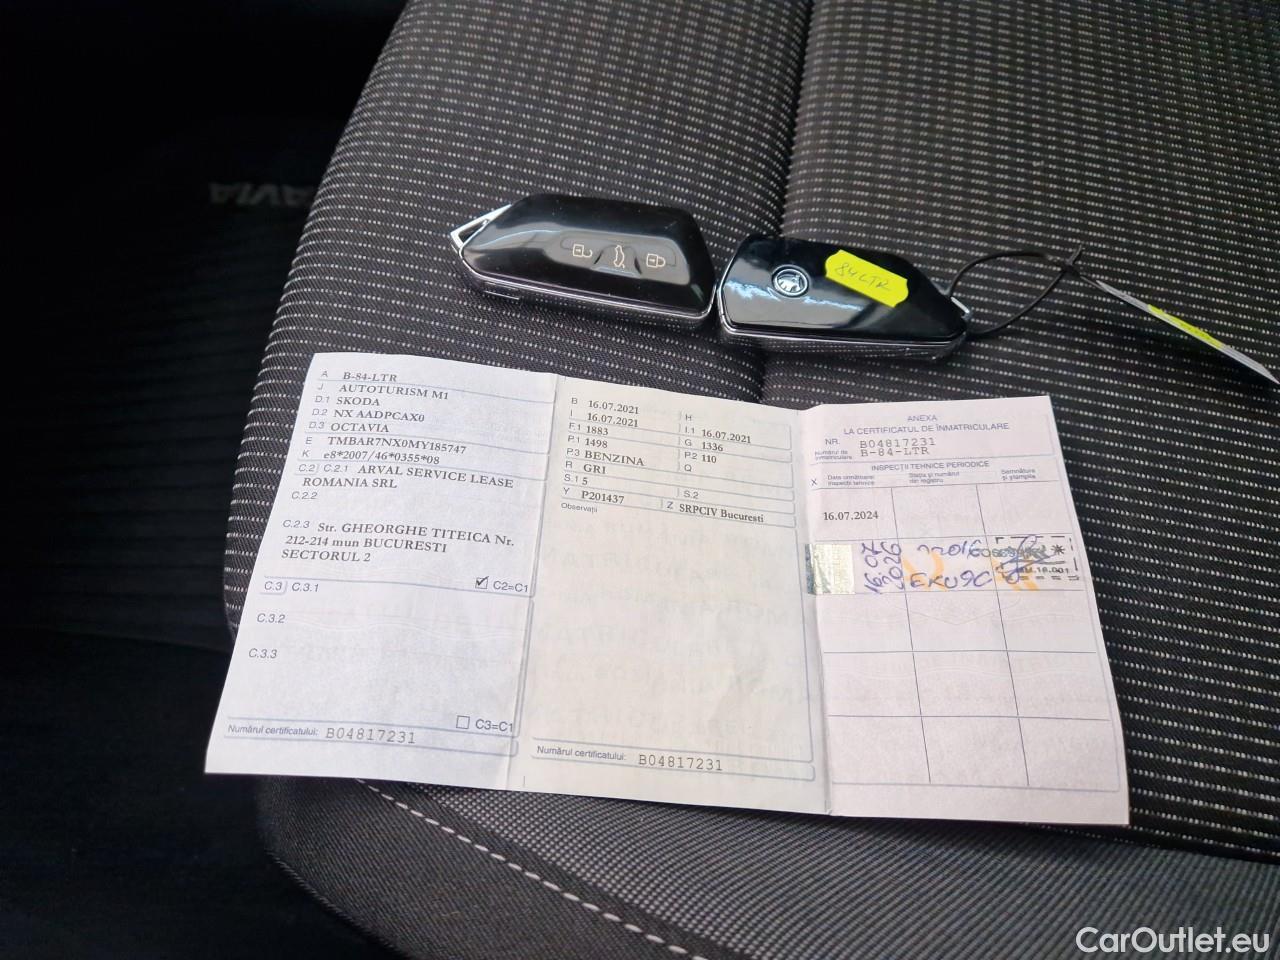 84LTR
A B-84-LTR
J AUTOTURISM M1
D.1 SKODA
D.2 NX AADPCAX0
D.3 OCTAVIA
E TMBAR7NX0MY185747
K e8*2007/46*0355*08
C.2 C.2.1 ARVAL SERVICE LEASE
ROMANIA SRL
C.2.2
C.2.3 Str. GHEORGHE TITEICA Nr.
212-214 mun BUCURESTI
SECTORUL 2
C2=C1
C.3 C.3.1
C.3.2
C.3.3
C3=C1
Numărul certificatului: B04817231
B 16.07.2021 H
I 16.07.2021 I.1 16.07.2021
F.1 1883 G 1336
P.1 1498 P.2 110
P.3 BENZINA Q
R GRI
S.1 5 S.2
Y P201437 Z SRPCIV Bucuresti
Observații
Numărul certificatului: B04817231
ANEXA
LA CERTIFICATUL DE ÎNMATRICULARE
NR. B04817231
Numărul de înmatriculare B-84-LTR
INSPECȚII TEHNICE PERIODICE
X Data următoarei inspecții tehnice Stația și numărul din registru Semnătura și ștampila
16.07.2024
16.07
2026
EKU9C
CarOutlet.eu